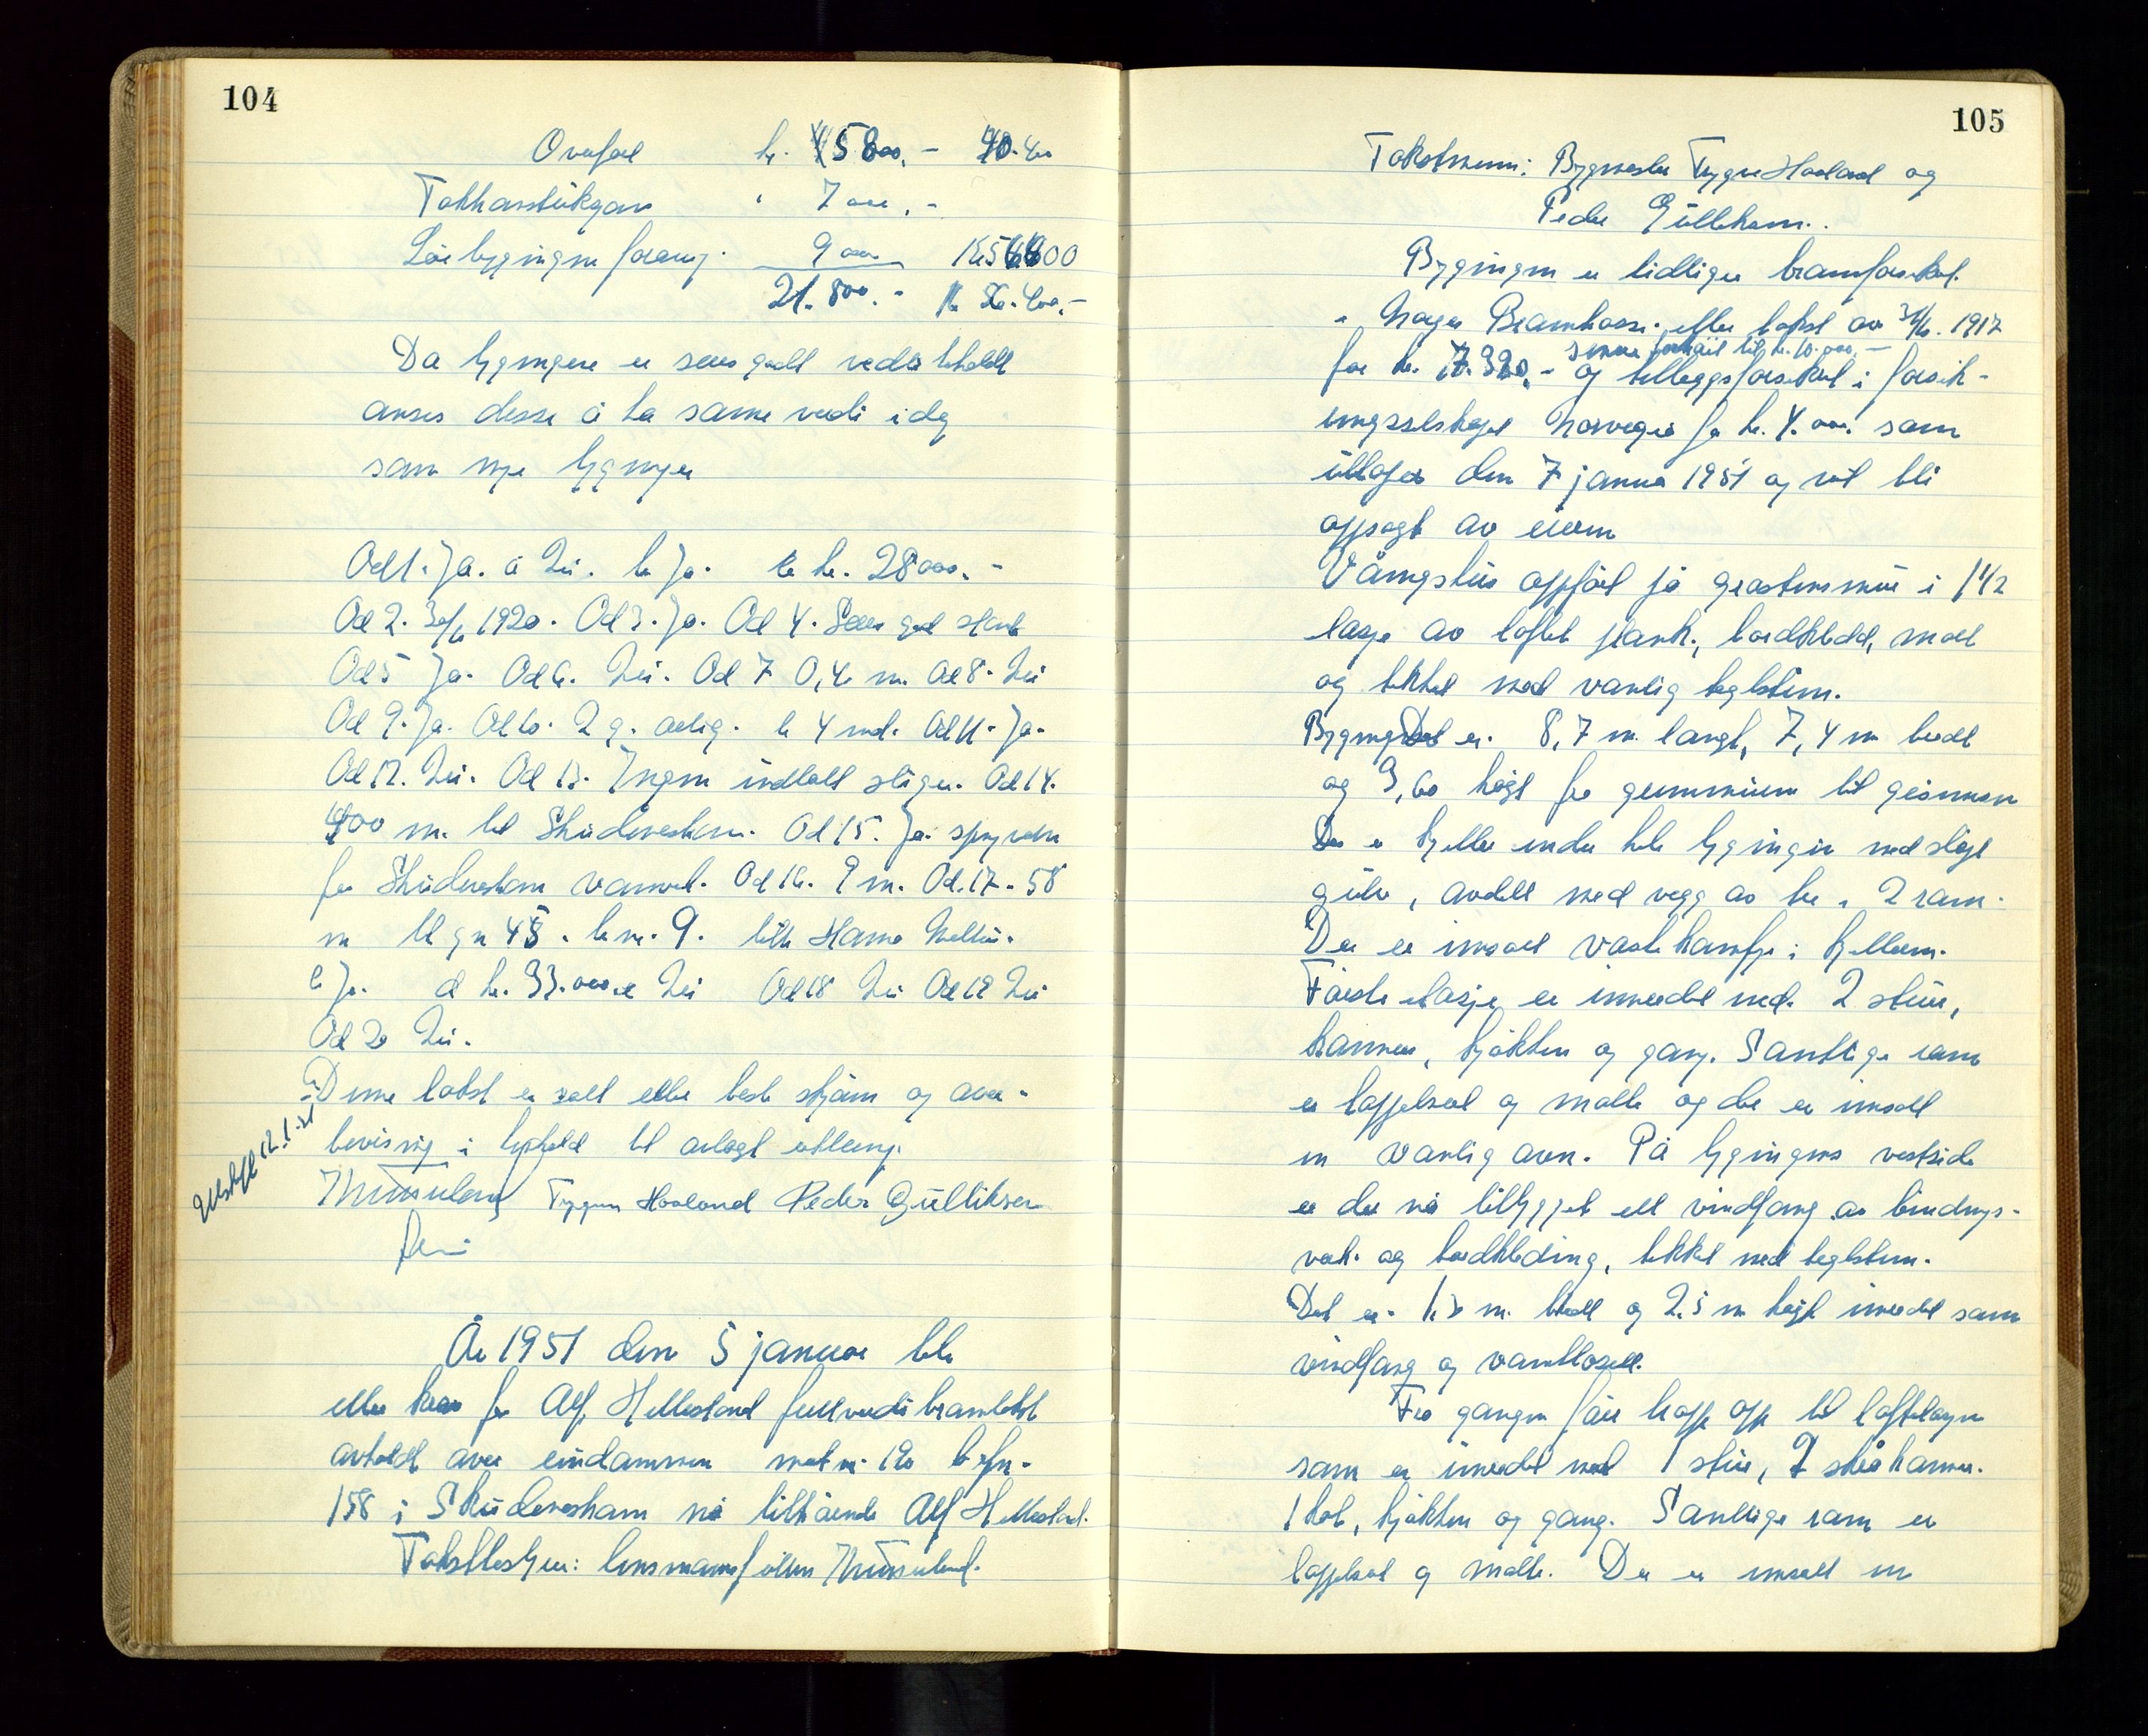 104
Overført kr. 15800.- 40.400
Takhasstukgar " 7000.-
Løebygningen forøvrig. 9000 16000
21.800.- kr 56.400.-
Da bygningene er sers godt vedlikeholdt
anses desse å ha samme verdi i dag
som nye bygninger
Ad 1. Ja. a Nei. b Ja. c kr. 28000.-
Ad 2. 1920. Ad 3. Ja. Ad 4. Sers god stand
Ad 5 Ja. Ad 6. Nei. Ad 7 0,4 m. Ad 8. Nei
Ad 9. Ja. Ad 10. 2 g. årlig. b 4 md. Ad 11. Ja.
Ad 12. Nei. Ad 13. Ingen indtatt stiger. Ad 14.
400 m. til Skudeneshavn. Ad 15. Ja
fra Skudeneshavn vannverk. Ad 16. 9 m. Ad. 17. 58
m til gn 45. br nr. 9. tilh Hanna
c Ja. d kr. 33.000 e Nei Ad 18 Nei Ad 19 Nei
Ad 20 Nei.
Denne takst er satt etter beste skjønn og over-
bevisning i henhold til avlagt erklæring.
Utskrift 12.1.51
Trygve Hovland Peder Gulliksen
År 1951 den 5 januar ble
etter krav fra Alf Hellesland fullverdi branntakst
avholdt over eiendommen matr nr. 120 br fn.
158 i Skudeneshavn nå tilhørende Alf Hellesland.
Takstbestyrer: lensmannsfullm
105
Takstmenn: Bygmester Trygve Hovland og
Peder Gulliksen.
Bygningen er tidligere brannforsikret
i Norges Brannkasse. etter takst av 1917
senere forhøit til kr. 10.000.-
for kr. 7.320.- og tilleggsforsikret i forsik-
ringsselskapet Norvegia for kr. 4.000 som
utløper den 7 januar 1951 og vil bli
oppsagt av eieren
Våningshus oppført på gråstensmur i 1 1/2
etasje av loftet plank, bordkledd, malt
og tekket med vanlig teglsten.
Bygningen er. 8,7 m. langt, 7,4 m bredt
og 3,60 høgt fra grunnmuren til gesimsen
Der er kjeller under hele bygningen med støpt
gulv, avdelt med vegg av tre i 2 rom.
Der er innsatt vaskekamfyr i kjelleren.
Første etasje er innredet med 2 stuer,
kammer, kjøkken og gang. Samtlige rom
er tappetsert og malte og det er innsatt
en vanlig ovn. På bygningens vestside
er der nå tilbygget ett vindfang av bindings-
verk og bordkledning, tekket med teglsten.
Det er. 1.3 m. bredt og 2.5 m høgt innredet som
vindfang og vannklosett.
Fra gangen fører trapp opp til loftetasjen
som er innredet med 1 stue, 2 skråkammer.
1 kot, kjøkken og gang. Samtlige rom er
tappetsert og malte. Der er innsatt en